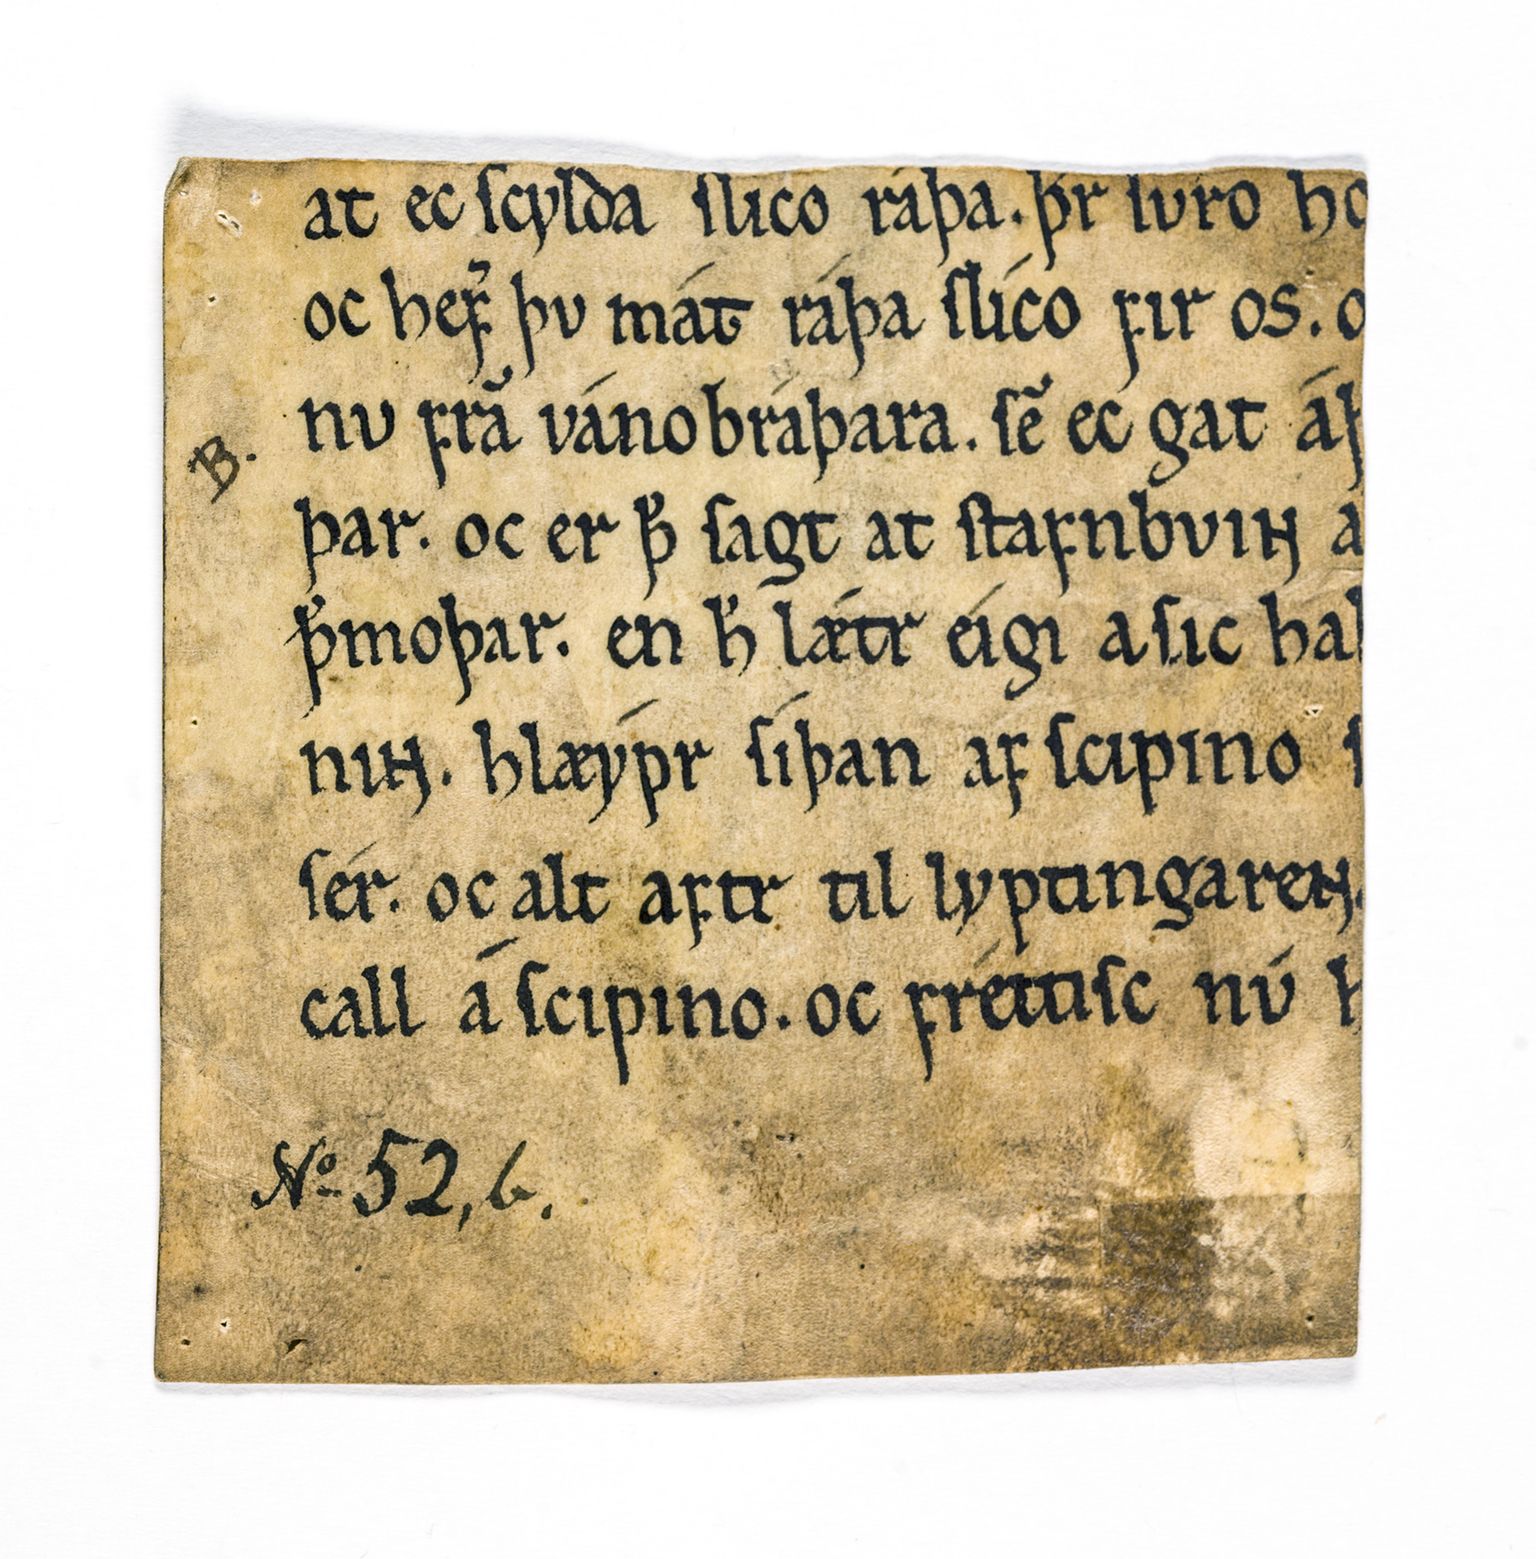 at ec ſcylda ſlico ráþa. þ̇r ſvro hc
oc hef̃ þv mát ráþa ſlíco fir os. o
nv frã vánobráþara. ſẽ ec gat áf
B.
þar. oc er þ̃ ſagt at ſtafnbviɴ a
þ̃moþar. en h̃ lǽtr éigi a ſic hal
niɴ. hlæýpr ſíþan af ſcipino ſ
ſér. oc alt aftr til lyptingareɴ.
call á ſcipino. oc fréttiſc nv́ h
No 52, b.